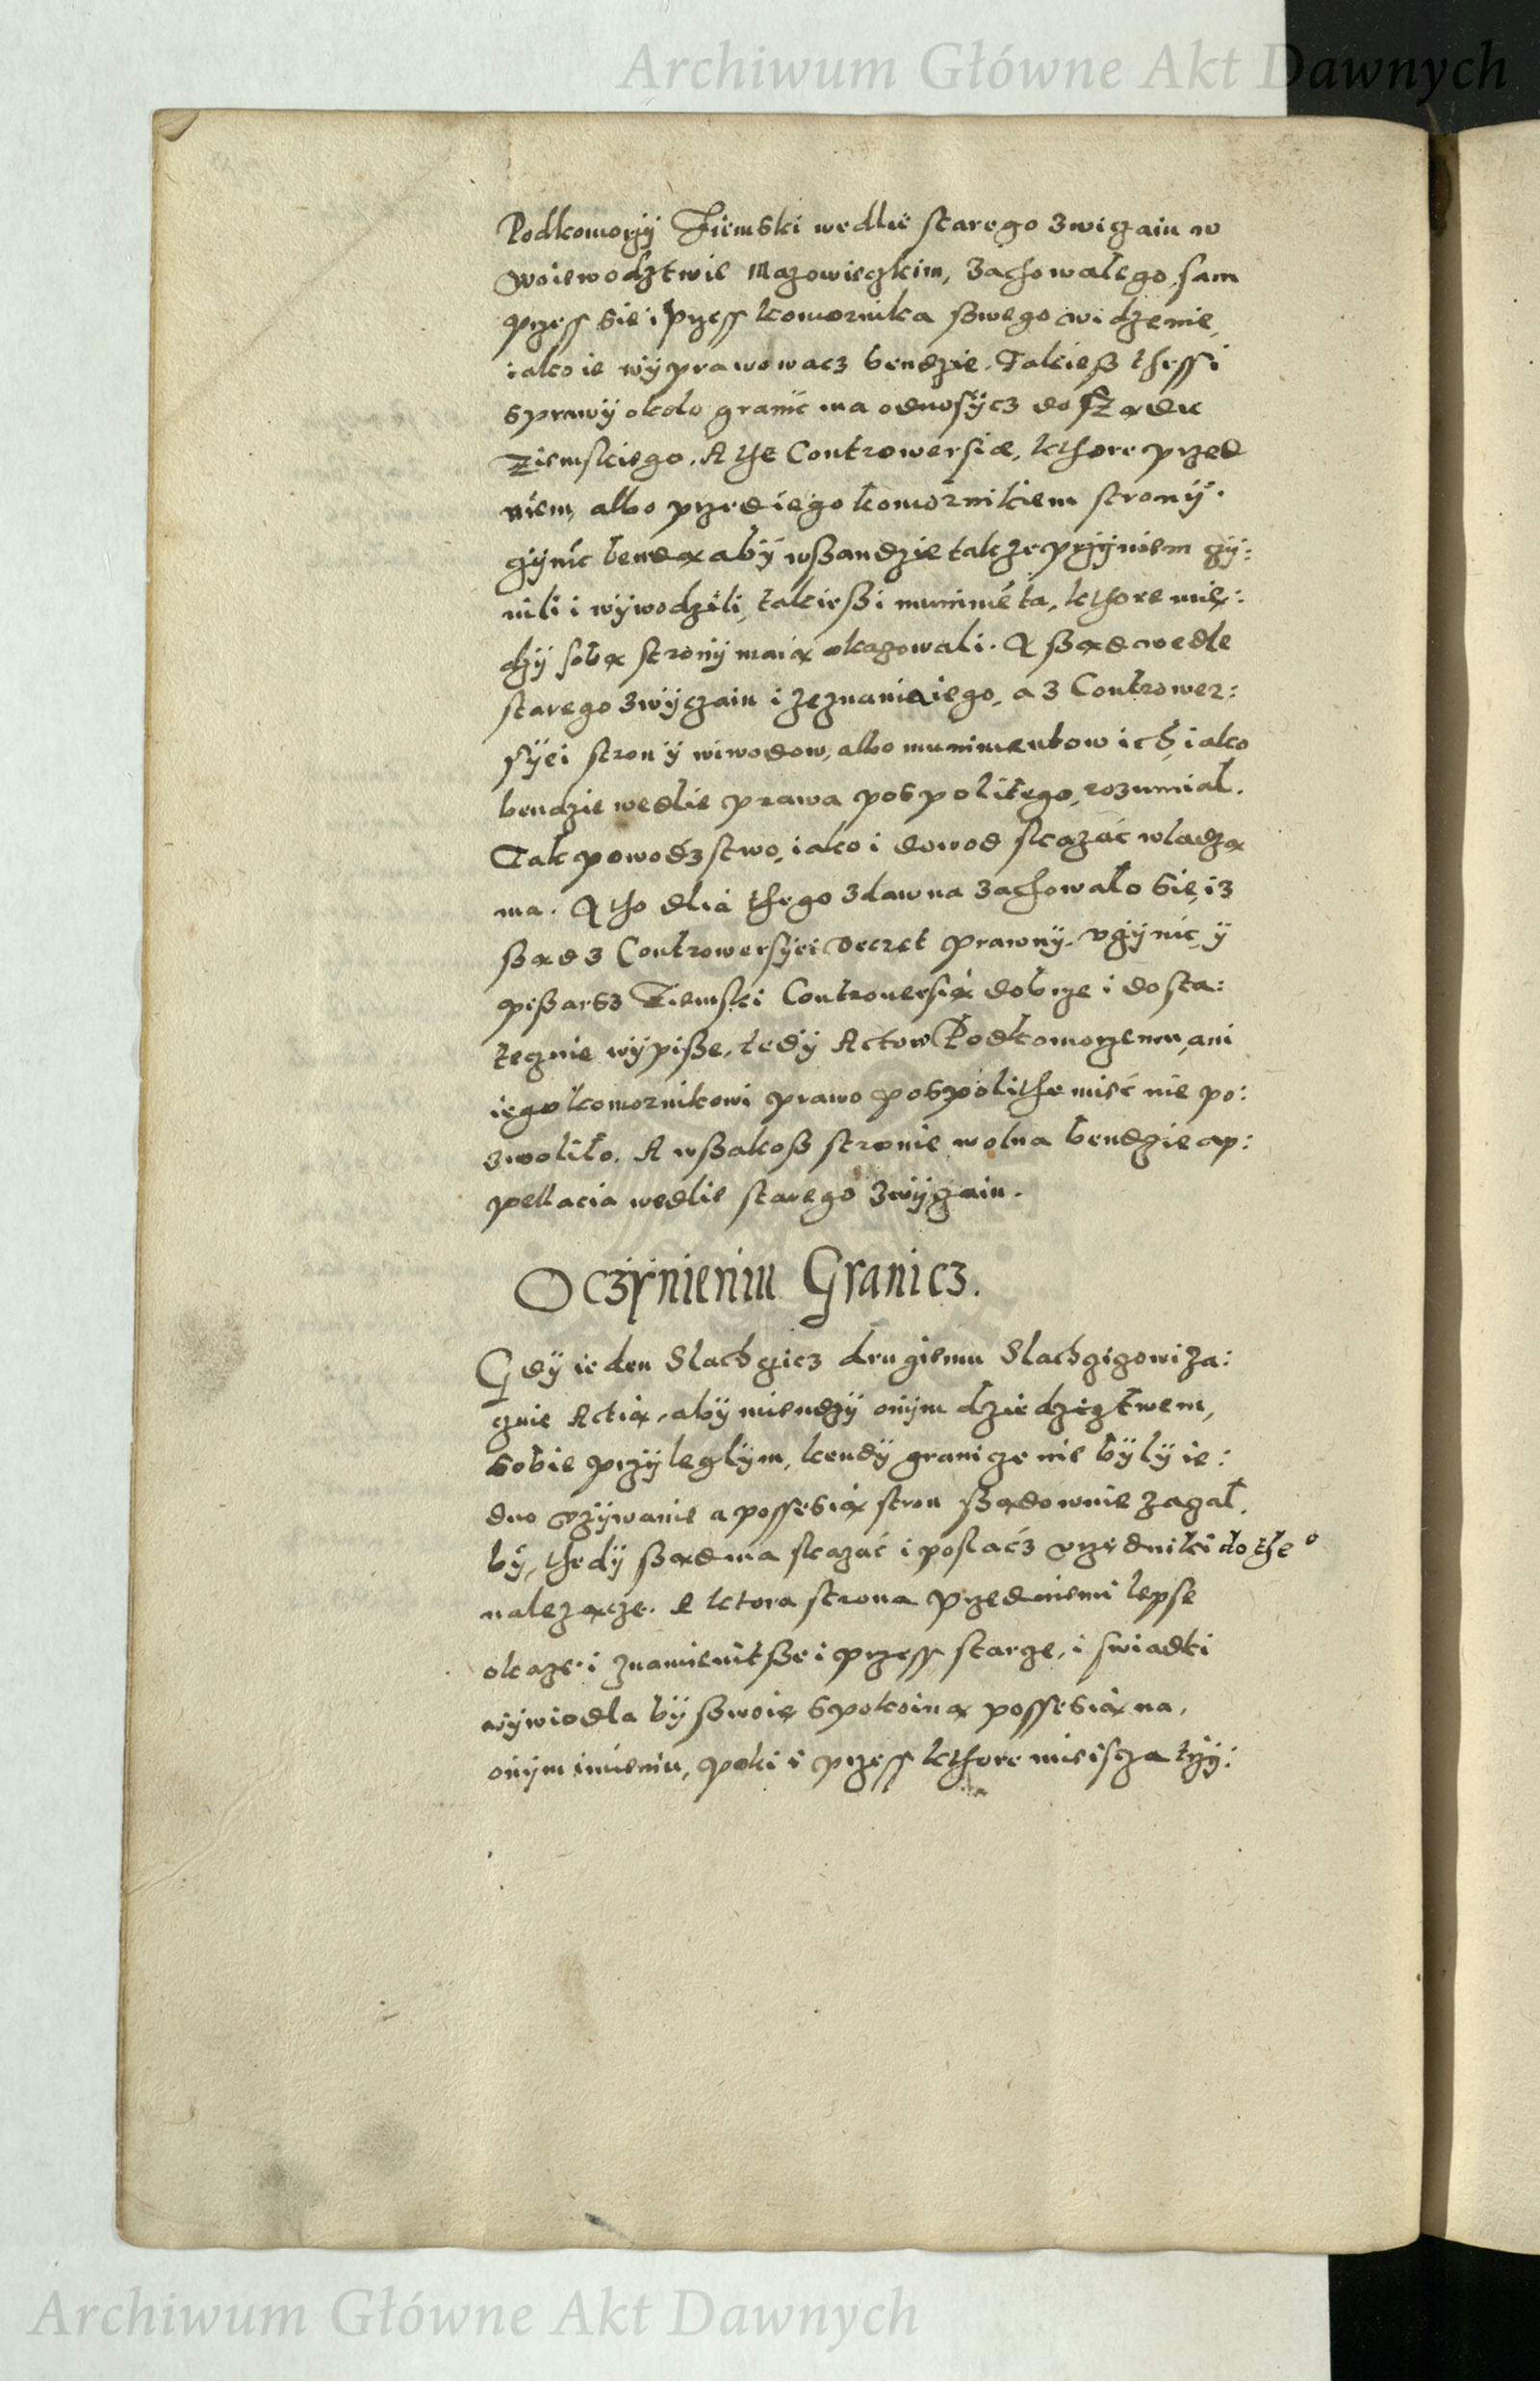 Archiwum Główne Akt Dawnych
Podkomorzÿ Ziemski wedlie starego zwiczaiu w
Woiewodztwie Mazowieczkim, zachowałego, sam
przess sie i przess komornika ßwego widzenie,
iako ie wÿprawowacz bendzie. Takieß thessi
sprawÿ około granic ma odnosÿcz do ßądu
Ziemskiego. A the Controwersiæ, kthore przed
niem, albo przed iego komornikiem stronÿ
czÿnic bendą abÿ w ßandzie takze przÿ niem czÿ:
nili i wÿwodzili, takiessi munimēta, kthore mię:
dzÿ sobą stronÿ maią okazowali. A ßąd wedle
starego zwÿczaiu i zeznania iego, a z Contrower:
sÿei stronÿ wiwodow, albo munimentow ich, iako
bendzie wedlie prawa pospolitego, rozumiał.
Tak powodzstwo, iako i dowod skazać władzą
ma. A tho dlia thego zdawna zachowało sie, iz
ßąd z Controwersÿei Decret prawnÿ vczÿnic, ÿ
pißarsz Ziemski Controuersią dobrze i dosta:
tecznie wÿpiße, tedÿ Actow Podkomorzemu, ani
iego komornikowi prawo pospolithe mieć nie po:
zwoliło. A wßakoß stronie wolna bendzie ap:
pellacia wedlie starego zwÿczaiu.
O czÿnieniu Granicz.
Gdÿ ieden Slachcicz drugiemu Slachcizowi za:
cznie Actią, abÿ miendzÿ onÿm dziedzicztwem,
sobie przÿleglÿm, kendÿ granicze nie bÿlÿ ie:
dno vzÿwanie a possesią stron ßądownie zagał,
bÿ, thedÿ ßąd ma skazać i posłacz vrzedniki do the°
nalezącze. A ktora strona przed niemi lepse
okaze i znamienitße i przess starze, i swiadki
wÿwiodla bÿ ßwoię spokoiną possesią na,
onÿm imieniu, poki i przess kthore mieiscza trzÿ:
Archiwum Główne Akt Dawnych